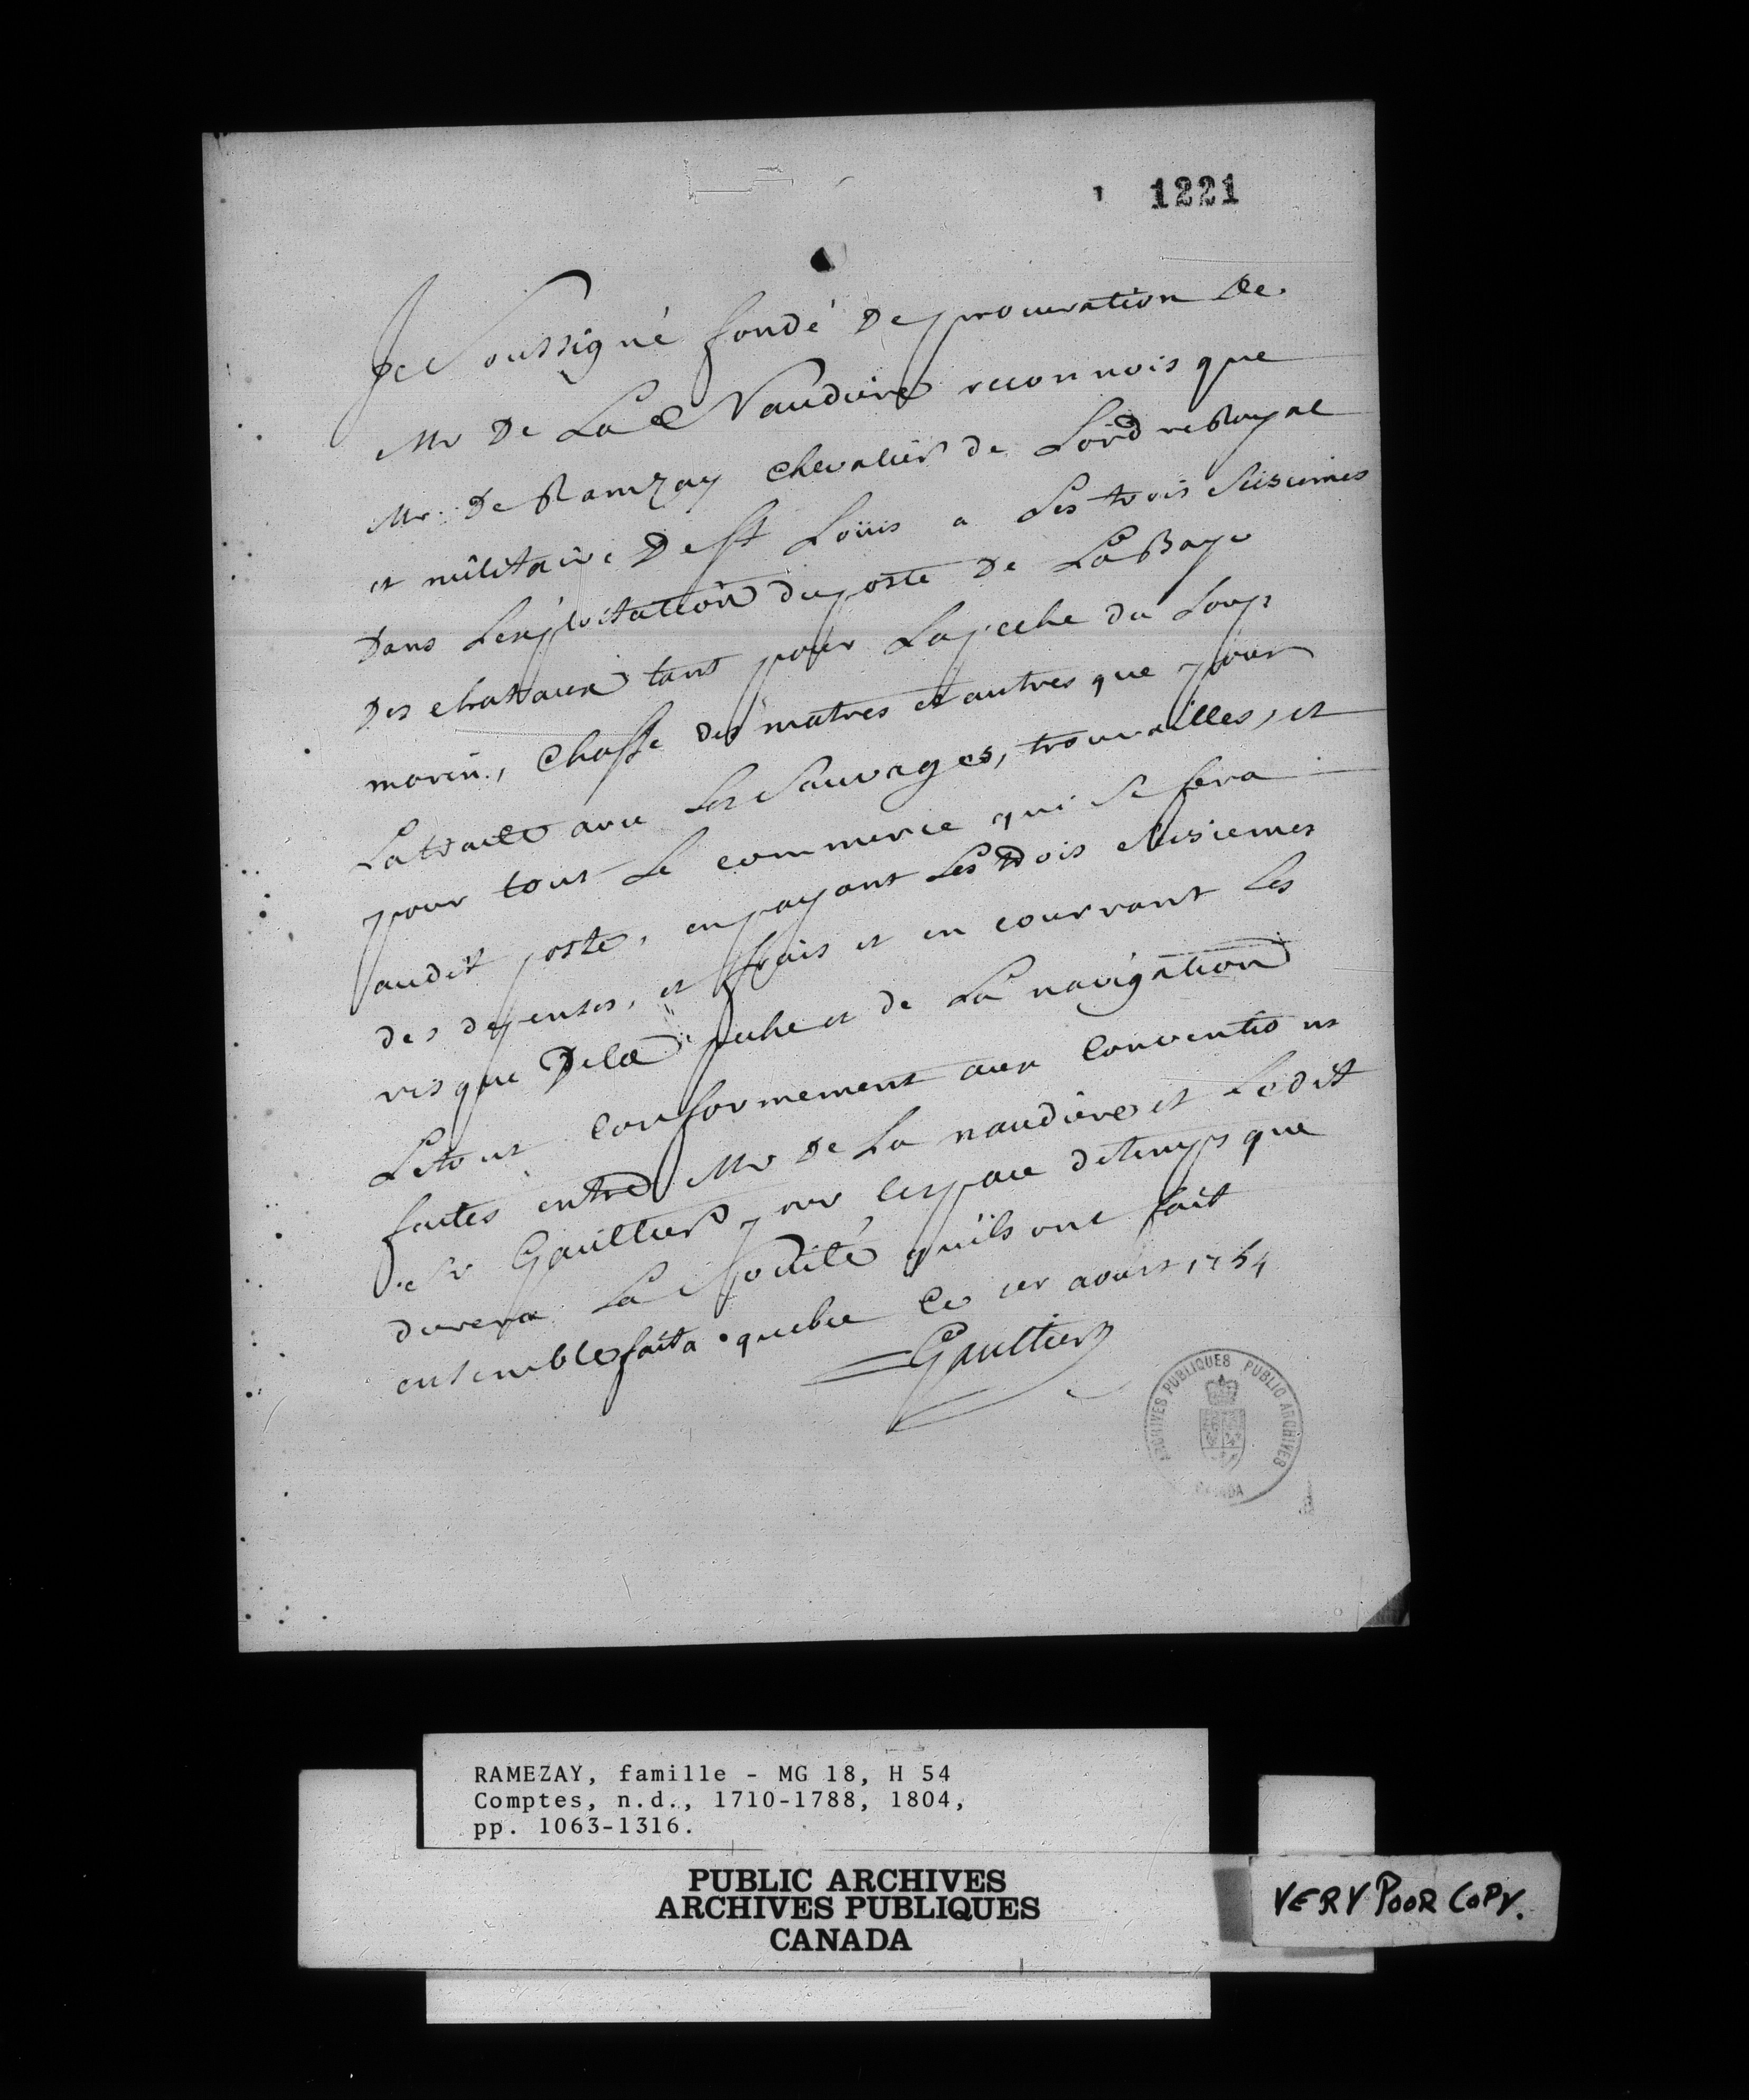 1221
Je Soussigné fondé De procuration De
Mr De La Naudiere reconnois que
Mr. De Ramzay Chevalier de Lordre Royal
et militaire De St Loüis a Les trois Seisiemes
Dans Lexploitation du poste De La Baye
Des chataux tant pour La peche du Loup
marin, Chasse des matres et autres que pour
La traite avec Les Sauvages, trouvailles, et
pour tout Le commerce qui Se fera
audit poste, en payant Les trois Seisiemes
des depenses, et frais et en courrant les
risque De la peche et de La navigation
Le tout Conformement aux Conventions
faites entre Mr De La naudiere et Ledit
Sr Gaultier pour lespace de temps que
durera La Société quils ont fait
ensemble fait a quebec Ce 1er aoust 1754
Gaultier
ARCHIVES PUBLIQUES PUBLIC ARCHIVES
CANADA
RAMEZAY, famille - MG 18, H 54
Comptes, n.d., 1710-1788, 1804,
pp. 1063-1316.
PUBLIC ARCHIVES
ARCHIVES PUBLIQUES
CANADA
VERY POOR COPY.